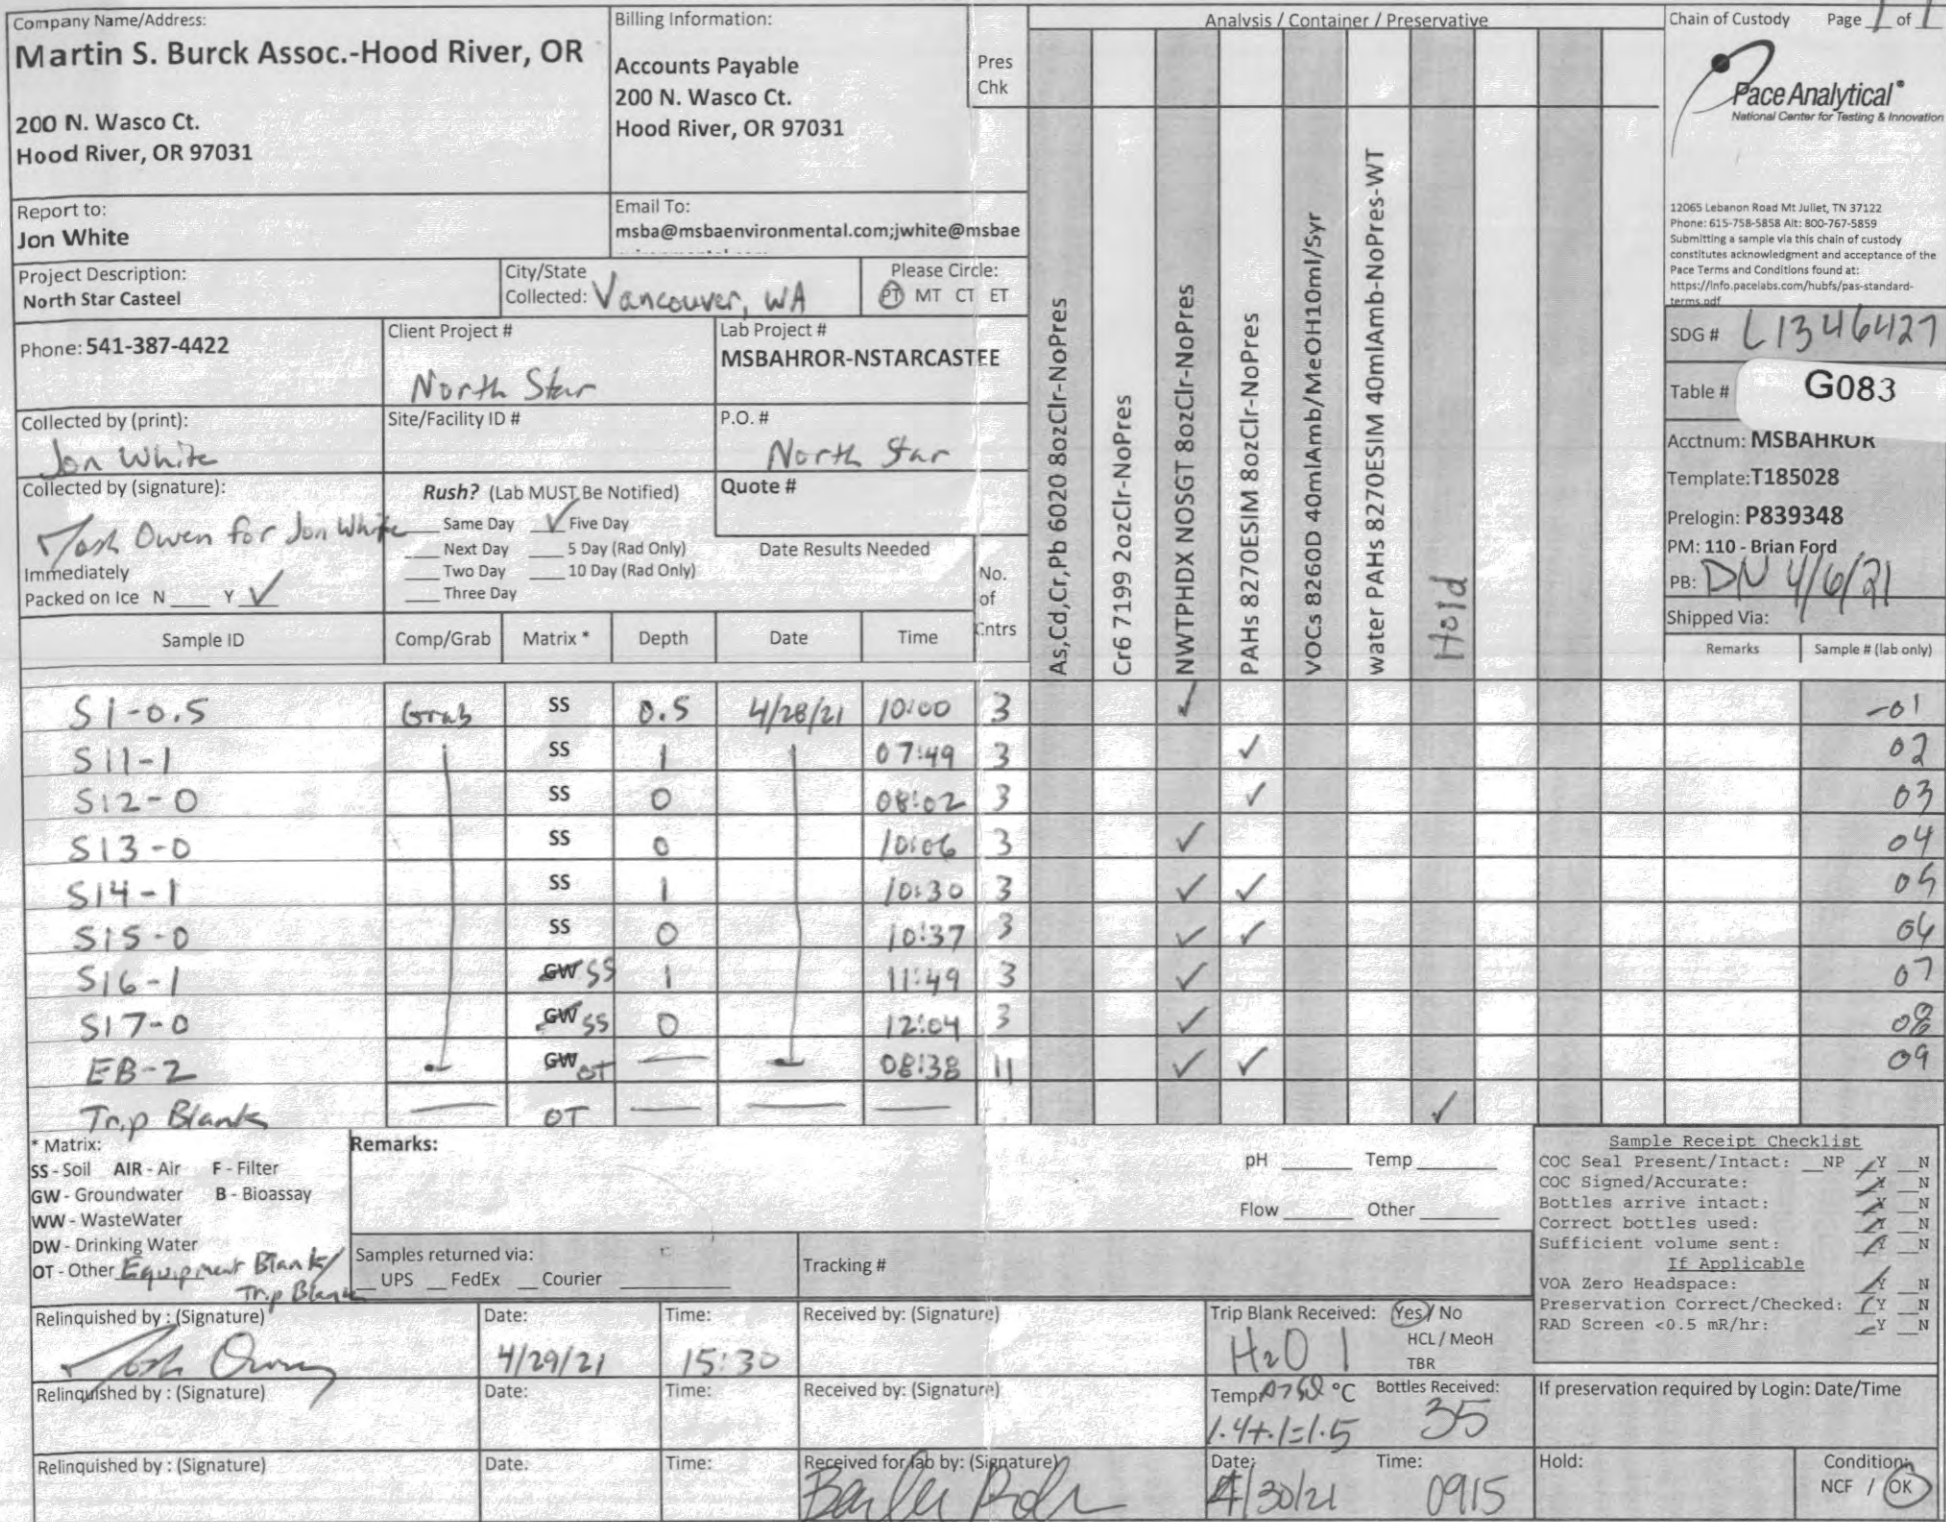 Company Name/Address:
Martin S. Burck Assoc.-Hood River, OR
200 N. Wasco Ct.
Hood River, OR 97031
Billing Information:
Accounts Payable
200 N. Wasco Ct.
Hood River, OR 97031
Pres
Chk
Analysis / Container / Preservative
Chain of Custody Page 1 of 1
Pace Analytical®
National Center for Testing & Innovation
12065 Lebanon Road Mt Juliet, TN 37122
Phone: 615-758-5858 Alt: 800-767-5859
Submitting a sample via this chain of custody
constitutes acknowledgment and acceptance of the
Pace Terms and Conditions found at:
https://info.pacelabs.com/hubfs/pas-standard-
terms.pdf
Report to:
Jon White
Email To:
msba@msbaenvironmental.com;jwhite@msbae
Project Description:
North Star Casteel
City/State
Collected: Vancouver, WA
Please Circle:
PT MT CT ET
Phone: 541-387-4422
Client Project #
North Star
Lab Project #
MSBAHROR-NSTARCASTEE
Collected by (print):
Jon White
Site/Facility ID #
P.O. #
North Star
Collected by (signature):
Josh Owen for Jon White
Rush? (Lab MUST Be Notified)
Same Day ✓ Five Day
Next Day 5 Day (Rad Only)
Two Day 10 Day (Rad Only)
Three Day
Quote #
Date Results Needed
Immediately
Packed on Ice N ___ Y ✓
No.
of
Cntrs
As,Cd,Cr,Pb 6020 8ozClr-NoPres
Cr6 7199 2ozClr-NoPres
NWTPHDX NOSGT 8ozClr-NoPres
PAHs 8270ESIM 8ozClr-NoPres
VOCs 8260D 40mlAmb/MeOH10ml/Syr
water PAHs 8270ESIM 40mlAmb-NoPres-WT
Hold
SDG # L1346427
Table # G083
Acctnum: MSBAHROR
Template: T185028
Prelogin: P839348
PM: 110 - Brian Ford
PB: DN 4/6/21
Shipped Via:
Remarks Sample # (lab only)
Sample ID Comp/Grab Matrix * Depth Date Time
S1-0.5 Grab SS 0.5 4/28/21 10:00 3 ✓ -01
S11-1 SS 1 07:49 3 ✓ 02
S12-0 SS 0 08:02 3 ✓ 03
S13-0 SS 0 10:06 3 ✓ 04
S14-1 SS 1 10:30 3 ✓ ✓ 05
S15-0 SS 0 10:37 3 ✓ ✓ 06
S16-1 GW SS 1 11:49 3 ✓ 07
S17-0 GW SS 0 12:04 3 ✓ 08
EB-2 GW OT — 08:38 11 ✓ ✓ 09
Trip Blank — OT — — — ✓
* Matrix:
SS - Soil AIR - Air F - Filter
GW - Groundwater B - Bioassay
WW - WasteWater
DW - Drinking Water
OT - Other Equipment Blank/
Trip Blank
Remarks:
pH ____ Temp ____
Flow ____ Other ____
Samples returned via:
__ UPS __ FedEx __ Courier
Tracking #
Sample Receipt Checklist
COC Seal Present/Intact: __NP ✓Y __N
COC Signed/Accurate: ✓Y __N
Bottles arrive intact: ✓Y __N
Correct bottles used: ✓Y __N
Sufficient volume sent: ✓Y __N
If Applicable
VOA Zero Headspace: ✓Y __N
Preservation Correct/Checked: ✓Y __N
RAD Screen <0.5 mR/hr: ✓Y __N
Relinquished by : (Signature)
Josh Owen
Date:
4/29/21
Time:
15:30
Received by: (Signature)
Trip Blank Received: Yes / No
H2O 1
HCL / MeoH
TBR
Relinquished by : (Signature)
Date:
Time:
Received by: (Signature)
Temp: °C
1.4+.1=1.5
Bottles Received:
35
If preservation required by Login: Date/Time
Relinquished by : (Signature)
Date:
Time:
Received for lab by: (Signature)
Date:
4/30/21
Time:
0915
Hold:
Condition:
NCF / OK